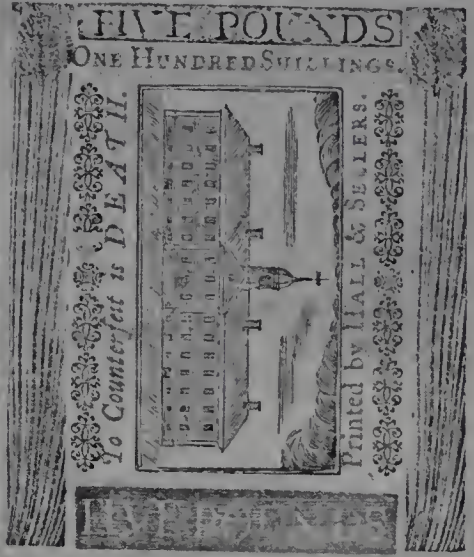 FIVE POUNDS
ONE HUNDRED SHILLINGS.
To Counterfeit is DEATH.
Printed by HALL & SELLERS.